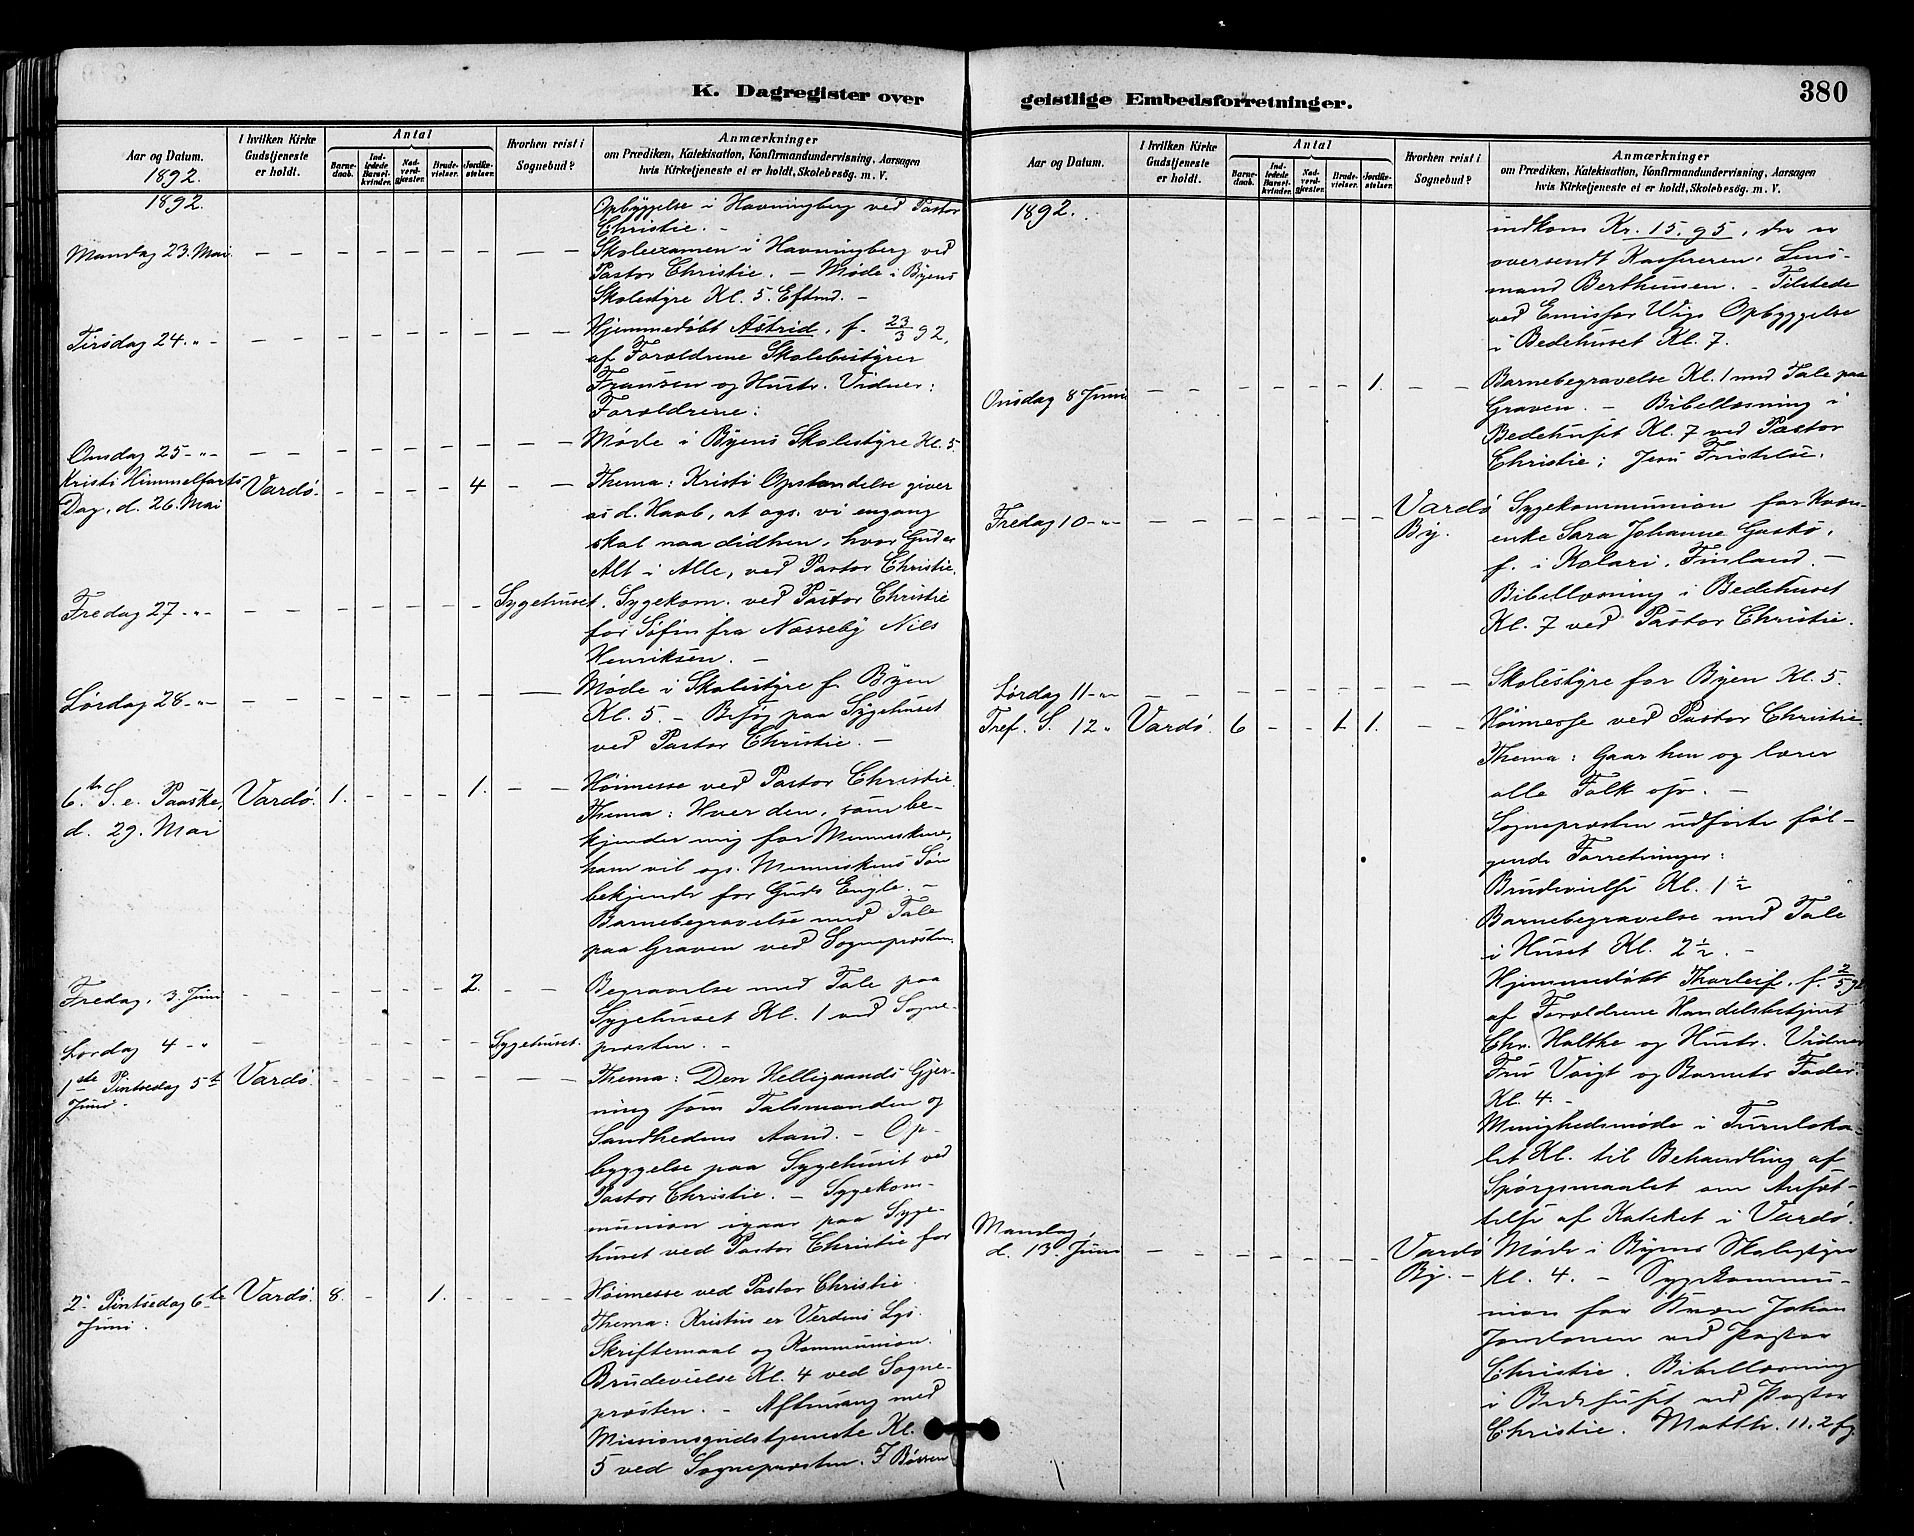 K. Dagregister over
geistlige Embedsforretninger.
380
Aar og Datum.
1892.
I hvilken Kirke
Gudstjeneste
er holdt.
Antal
Barne-
daab.
Ind-
ledede
Barsel-
kvinder.
Nad-
verd-
gjæster.
Brude-
vielser.
Jordfæ-
stelser.
Hvorhen reist i
Sognebud?
Anmærkninger
om Prædiken, Katekisation, Konfirmandundervisning, Aarsagen
hvis Kirketjeneste ei er holdt, Skolebesøg. m. V.
1892.
Opbyggelse i Havningberg ved Pastor
Christie. –
Mandag 23. Mai. – – – – – – – Skoleexamen i Havningberg ved
Pastor Christie. – Møde i Byens
Skolestyre Kl. 5. Eftmd. –
Tirsdag 24. „ – – – – – – – Hjemmedøbt Astrid, f. 23/3 92,
af Forældrene Skolebestyrer
Fransen og Hustr. Vidner:
Forældrene:
Onsdag 25 – „ – – – – – – – Møde i Byens Skolestyre Kl. 5.
Kristi Himmelfarts Vardø. – – – – 4 – – Thema: Kristi Opstandelse giver
Dag, d. 26. Mai
os d. Haab, at ogs. vi engang
skal naa didhen, hvor Gud er
Alt i Alle, ved Pastor Christie.
Fredag 27 – „ – – – – – – Sygehuset. Sygekom. ved Pastor Christie
for Søfin fra Næsseby Nils
Henriksen. –
Lørdag 28 – „ – – – – – – – Møde i Skolestyre f. Byen
Kl. 5. – Besøg paa Sygehuset
ved Pastor Christie. –
6te S. e. Paaske, Vardø. 1. – – – 1. – – Høimesse ved Pastor Christie.
d. 29. Mai
Thema: Hver den, som be-
kjender mig for Menneskene,
ham vil ogs. Menneskens Søn
bekjende for Guds Engle. –
Barnebegravelse med Tale
paa Graven ved Sognepræsten.
Fredag, 3. Juni – – – – – 2. – – Begravelse med Tale paa
Sygehuset Kl. 1 ved Sogne-
Lørdag 4 – „ – – – – – – Sygehuset. præsten. –
1ste Pintsedag 5t Vardø. – – – – – – – Thema: Den Helligaands Gjer-
Juni.
ning som Talsmanden og
Sandhedens Aand. – Op-
byggelse paa Sygehuset ved
Pastor Christie. – Sygekom-
munion igaar paa Syge-
huset ved Pastor Christie for
2. Pintsedag 6te Vardø. 8. – – 1. – – – Høimesse ved Pastor Christie.
Juni.
Thema: Kristus er Verdens Lys.
Skriftemaal og Kommunion.
Brudevielse Kl. 4 ved Sogne-
præsten. – Aftensang med
Missionsgudstjeneste Kl.
5 ved Sognepræsten. I Bøssen
Aar og Datum.
I hvilken Kirke
Gudstjeneste
er holdt.
Antal
Barne-
daab.
Ind-
ledede
Barsel-
kvinder.
Nad-
verd-
gjæster.
Brude-
vielser.
Jordfæ-
stelser.
Hvorhen reist i
Sognebud?
Anmærkninger
om Prædiken, Katekisation, Konfirmandundervisning, Aarsagen
hvis Kirketjeneste ei er holdt, Skolebesøg. m. V.
1892.
indkom Kr. 15,95, der er
oversendt Kassereren, Lens-
mand Berthensen. – Tilstede
ved Emissær Wigs Opbyggelse
i Bedehuset Kl. 7.
Onsdag 8 Juni – – – – – 1. – – Barnebegravelse Kl. 1 med Tale paa
Graven. – Bibellæsning i
Bedehuset Kl. 7 ved Pastor
Christie; Jesu Fristelse.
Fredag 10 – „ – – – – – – Vardø Sygekommunion for Kvæn-
By. enke Sara Johanne Gaskø,
f. i Kolari, Finland. –
Bibellæsning i Bedehuset
Kl. 7 ved Pastor Christie.
Lørdag 11 – „ – – – – – – – Skolestyre for Byen Kl. 5.
Tref. S. 12 „ Vardø. 6 – – 1. 1. – – Høimesse ved Pastor Christie.
Thema: Gaar hen og lærer
alle Folk osv. –
Sognepræsten udførte føl-
gende Forretninger:
Brudevielse Kl. 1 1/2
Barnebegravelse med Tale
i Huset Kl. 2 1/2. –
Hjemmedøbt Thorleif, f. 2/5 92,
af Forældrene Handelsbetjent
Chr. Holtke og Hustr. Vidner
Fru Voigt og Barnets Fader.
Kl. 4. –
Menighedsmøde i Turnloka-
let Kl. til Behandling af
Spørgsmaalet om Ansæt-
telse af Kateket i Vardø.
Mandag,
d. 13. Juni – – – – – – Vardø Møde i Byens Skolestyre
By. – Kl. 4. – Sygekommu-
nion for Kvæn Johan
ved Pastor
Christie. Bibellæsning
i Bedehuset ved Pastor
Christie. Matth. 11. 2 fg.